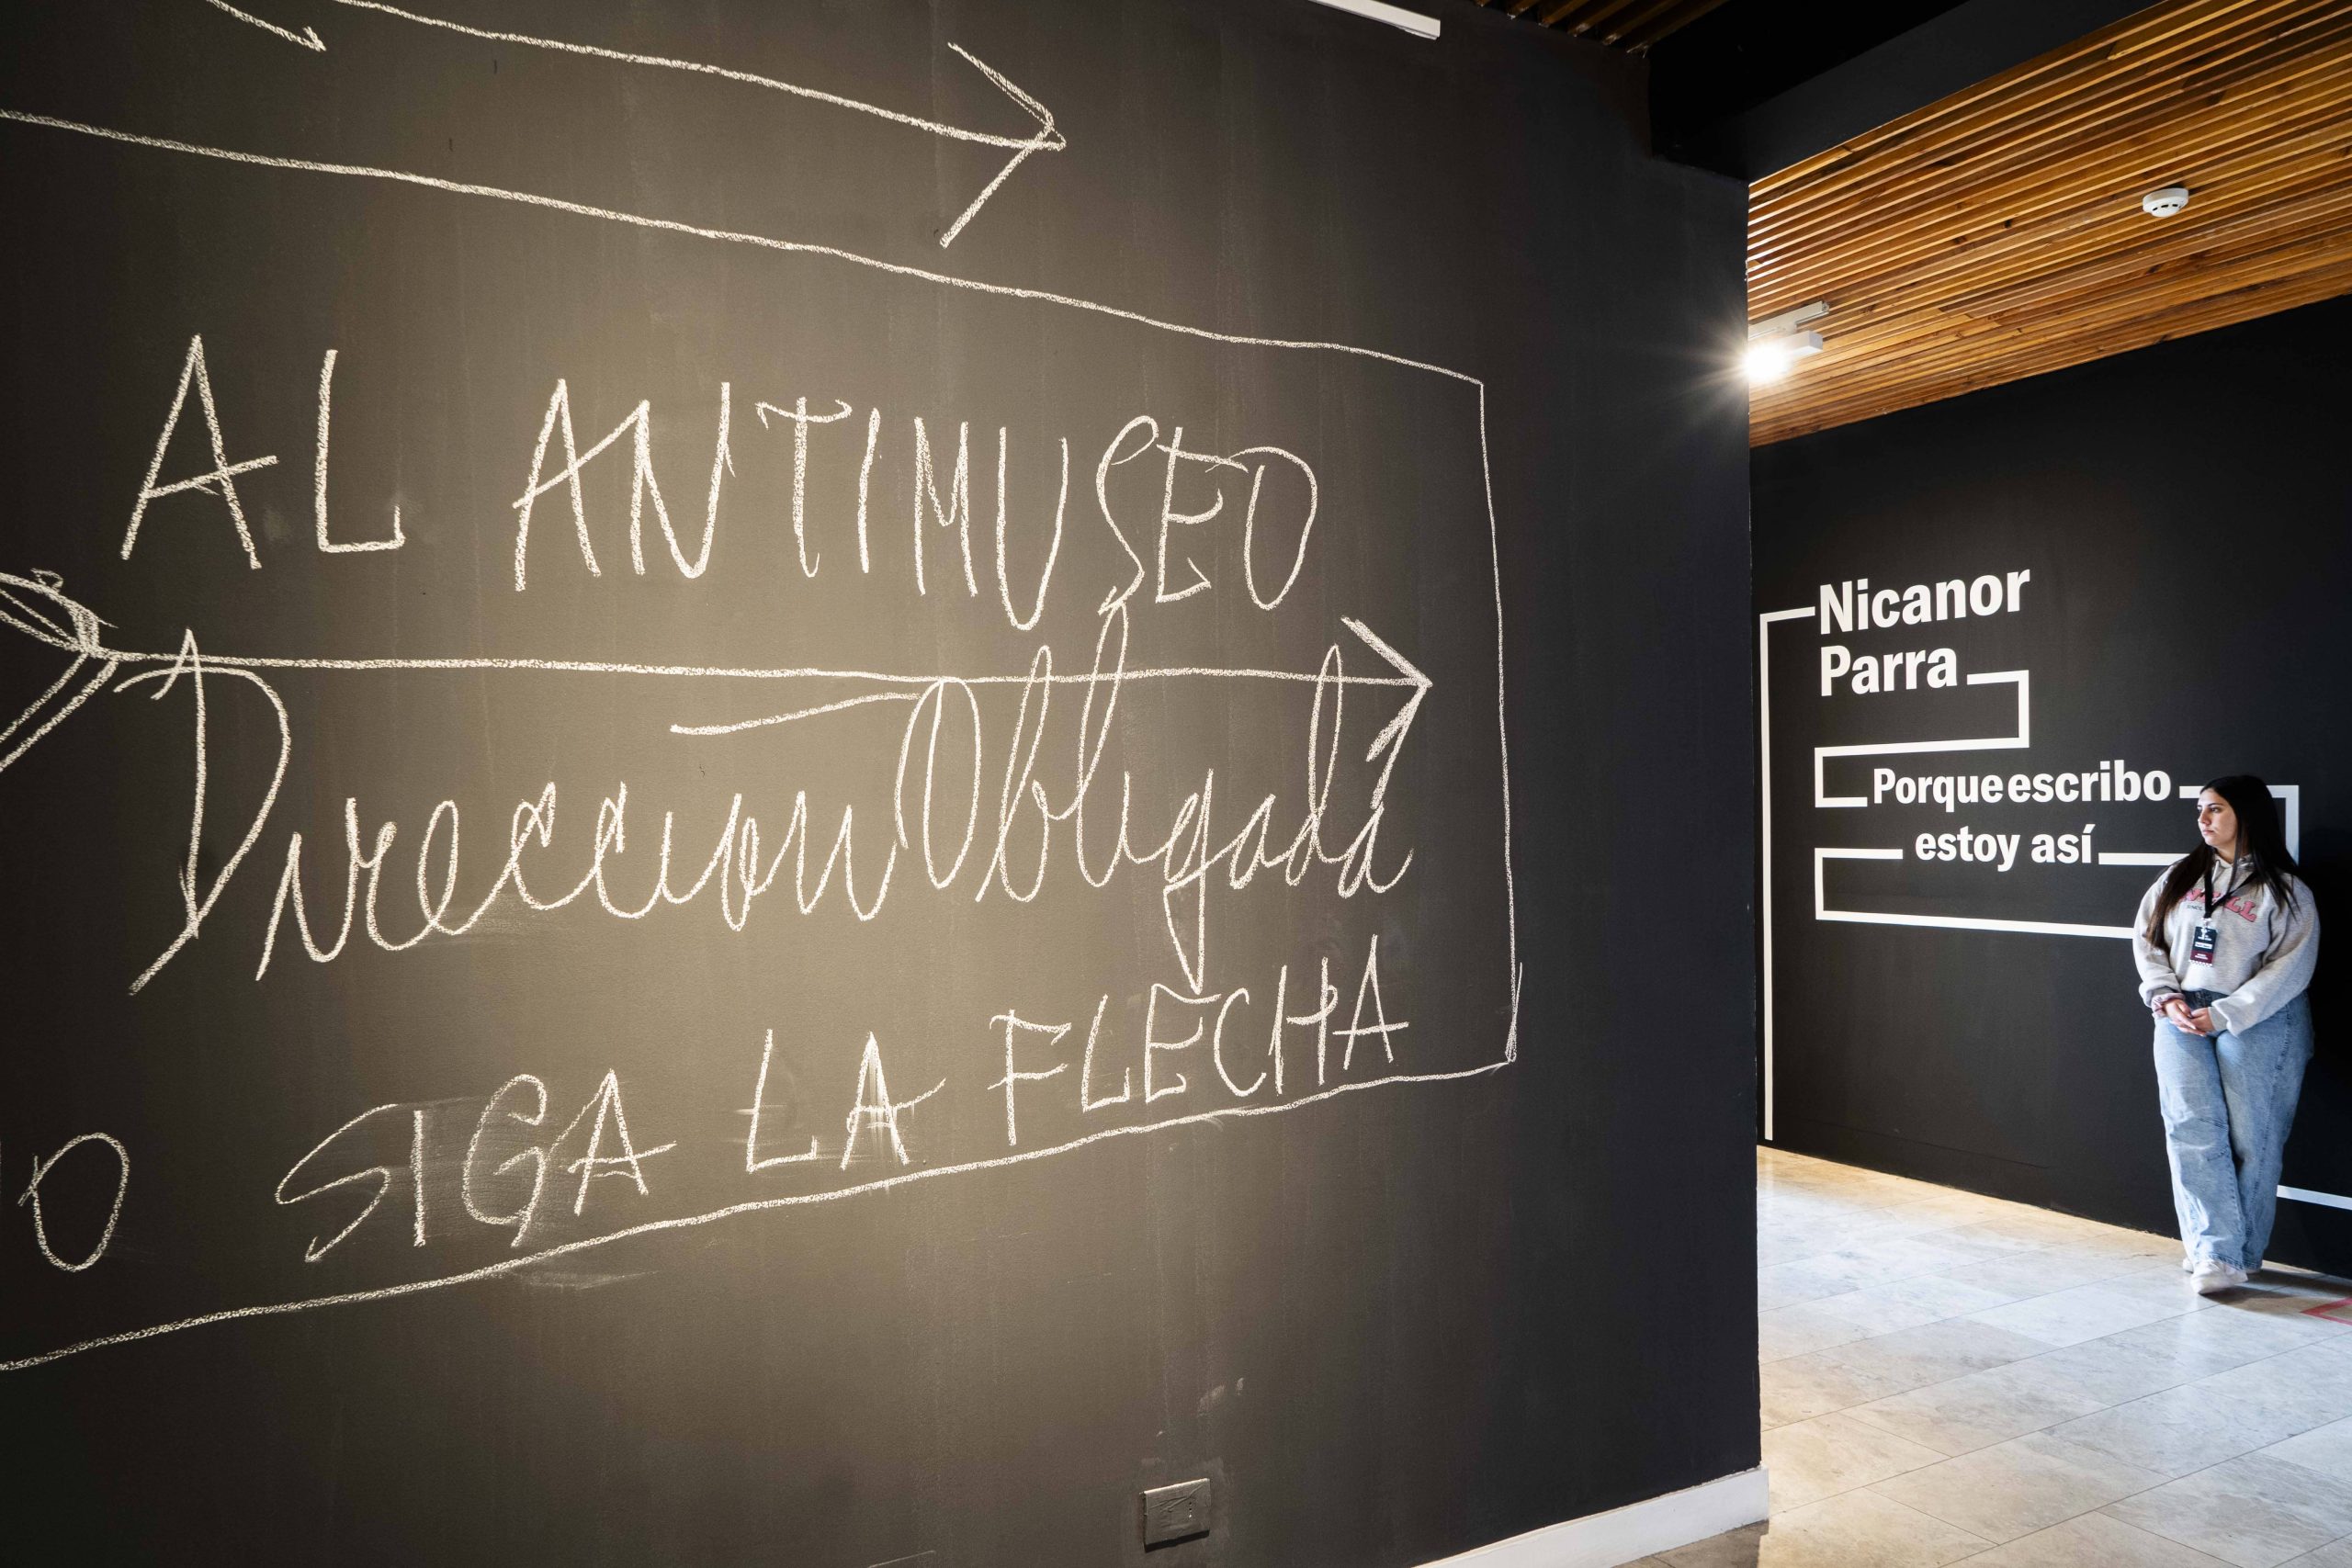 AL ANTIMUSEO
Dirección Obligada
O SIGA LA FLECHA
Nicanor
Parra
Porque escribo
estoy así